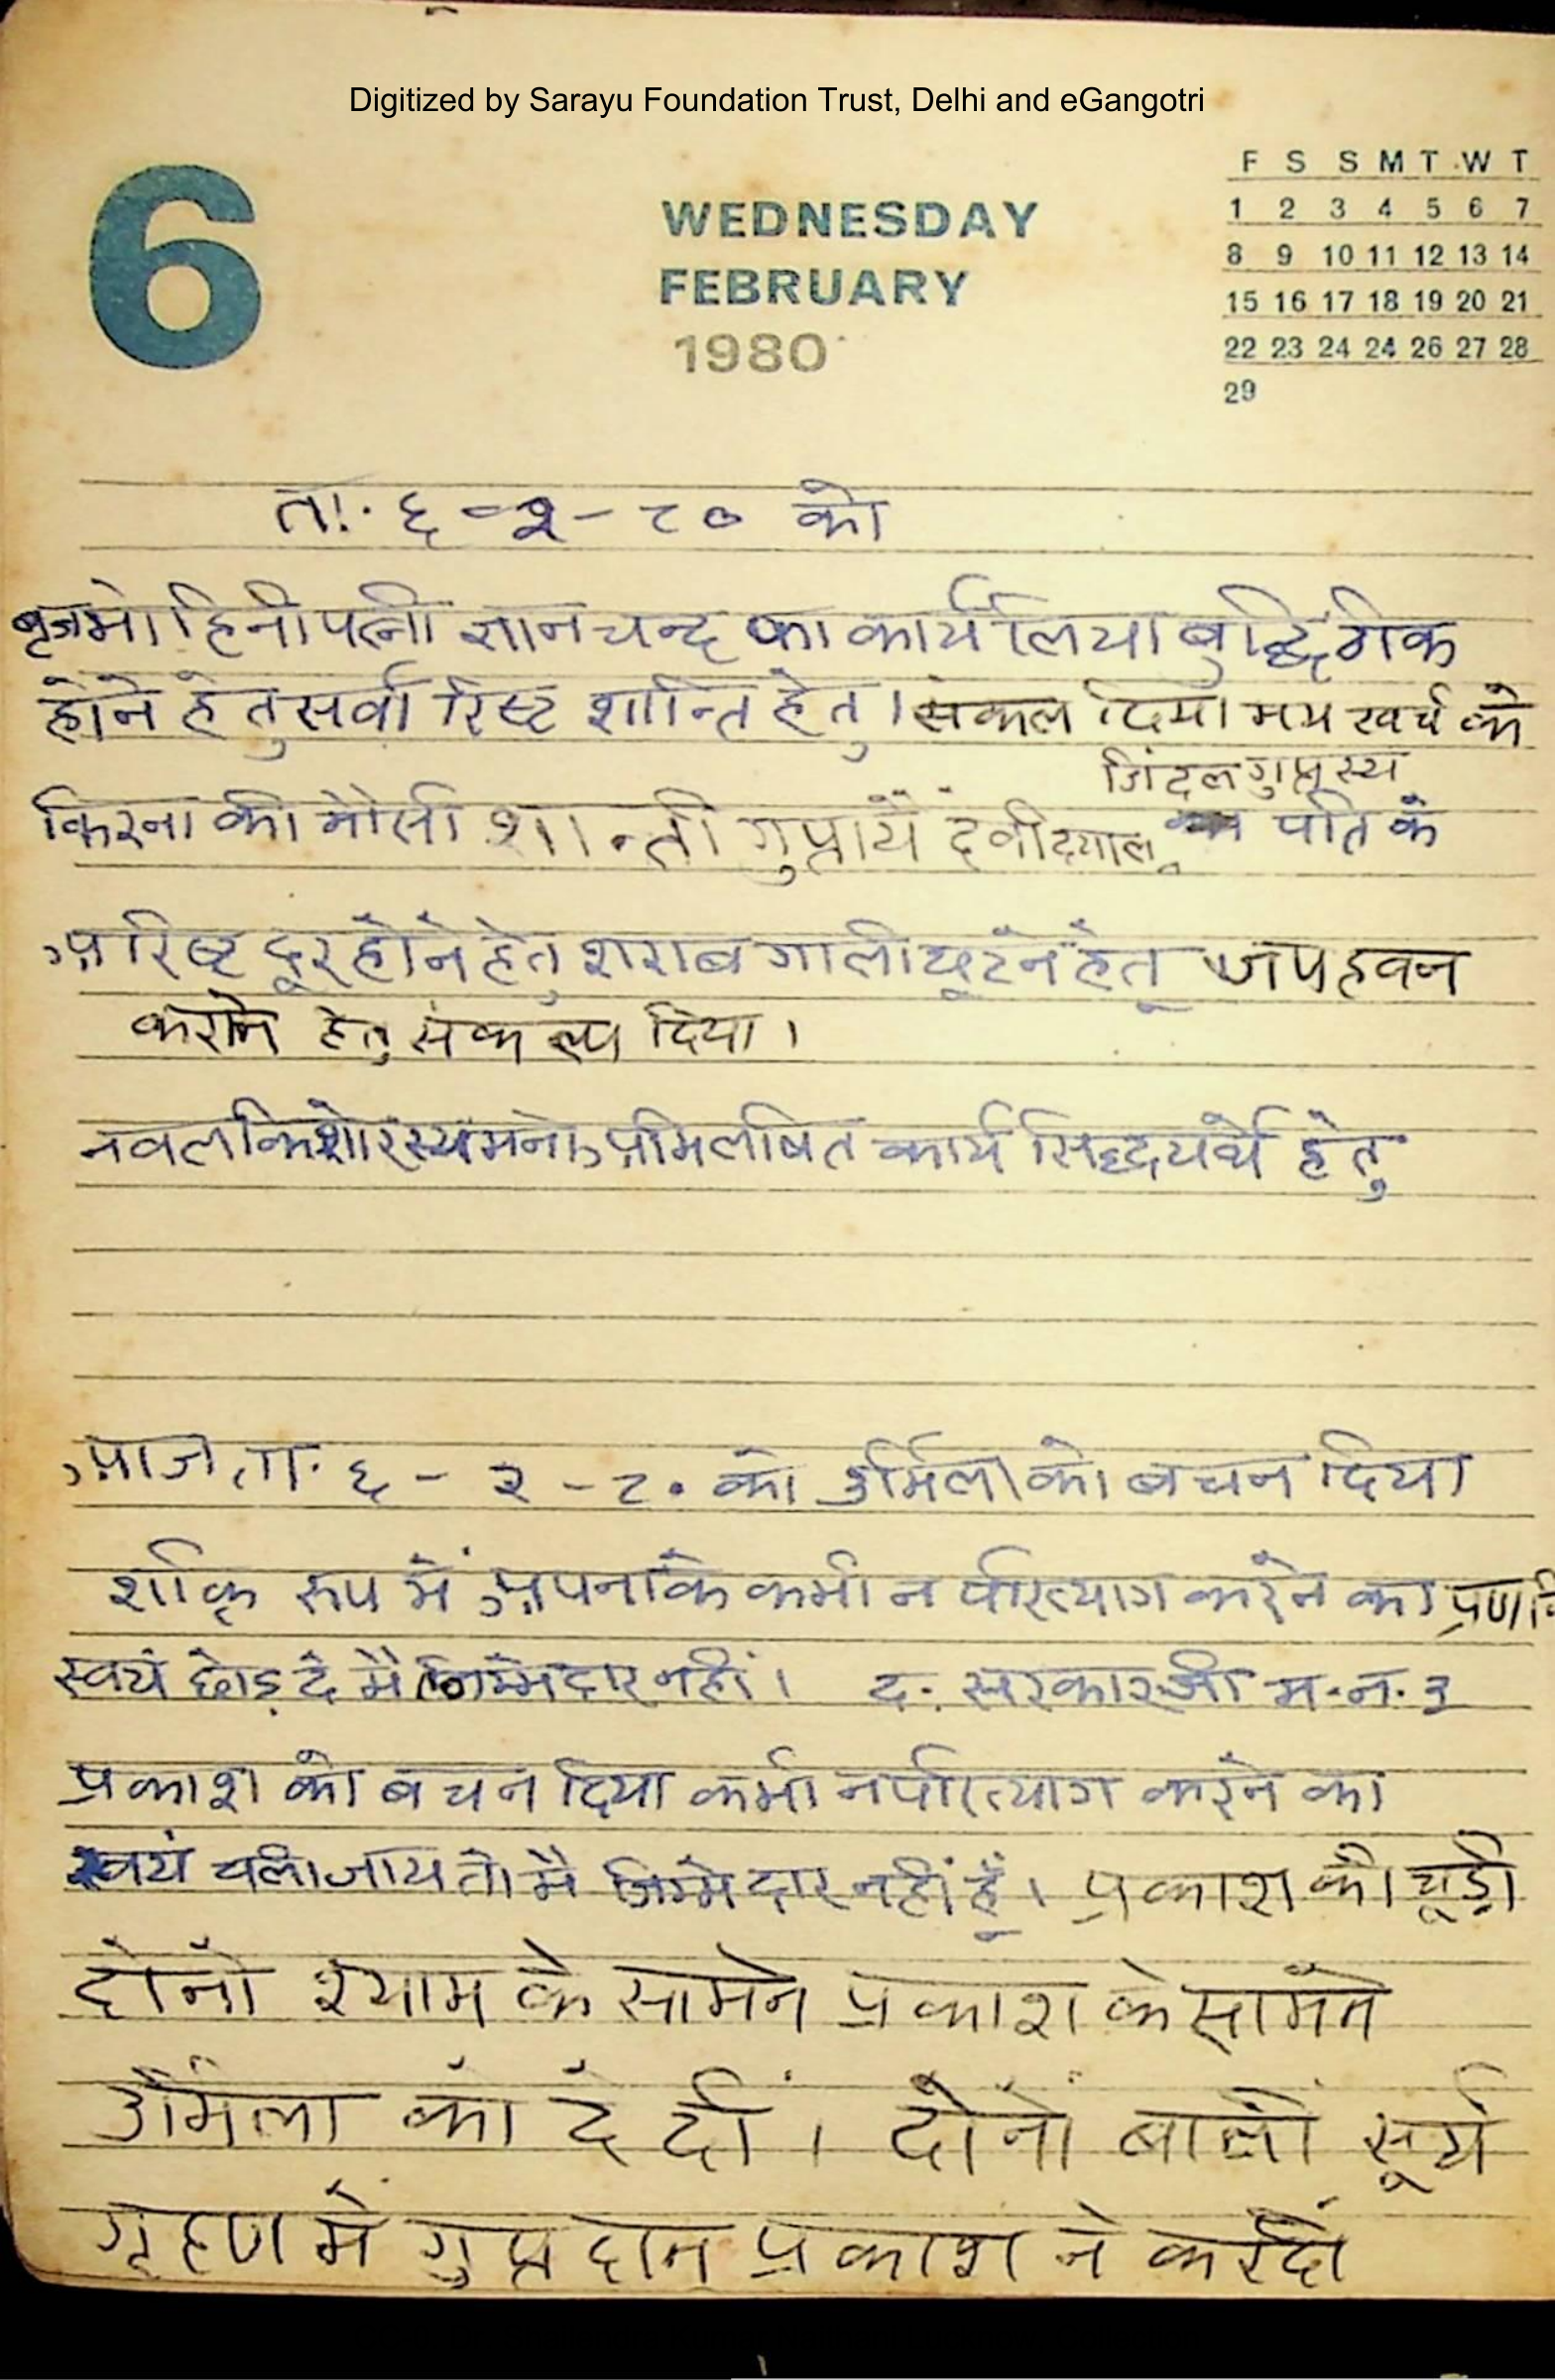 Digitized by Sarayu Foundation Trust, Delhi and eGangotri
F S S M T W T
6
WEDNESDAY
FEBRUARY
1980
1 2 3 4 5 6 7
8 9 10 11 12 13 14
15 16 17 18 19 20 21
22 23 24 24 26 27 28
29
ता. ६-२-८० को
बृजमोहिनी पत्नी ज्ञानचन्द का कार्य लिया बुद्धि ठीक
होने हेतु सर्वारिष्ट शान्ति हेतु । संकल्प दिया मय खर्च के
जिंदल गुप्तस्य
किरना की मौसी शान्ती गुप्तायै देवीदयाल पति के
अरिष्ट दूर होने हेतु शराब गाली छूटने हेतु जप हवन
कराने हेतु संकल्प दिया ।
नवलकिशोरस्य मनोअभिलषित कार्य सिद्धयर्थे हेतु
आज ता. ६-२-८० को उर्मिला को बचन दिया
रूप में अपना के कभी न परित्याग करने का
स्वयं छोड़ दे मैं जिम्मेदार नहीं । द. सरकार जी म.न.३
प्रकाश को बचन दिया कभी न परित्याग करने का
स्वयं चला जाय तो मैं जिम्मेदार नहीं हूँ । प्रकाश की चूड़ी
दोनों श्याम के सामने प्रकाश के सामने
उर्मिला को दे दी । दोनों बाली सूर्य
गृहण में गुप्त दान प्रकाश ने कर दी